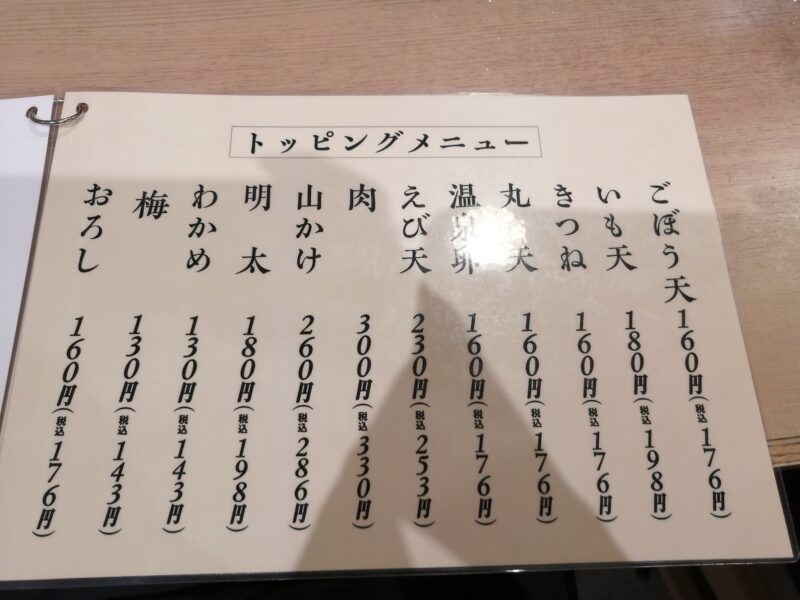 トッピングメニュー
ごぼう天 160円(税込176円)
いも天 180円(税込198円)
きつね 160円(税込176円)
丸天 160円(税込176円)
温泉卵 160円(税込176円)
えび天 230円(税込253円)
肉 300円(税込330円)
山かけ 260円(税込286円)
明太 180円(税込198円)
わかめ 130円(税込143円)
梅 130円(税込143円)
おろし 160円(税込176円)